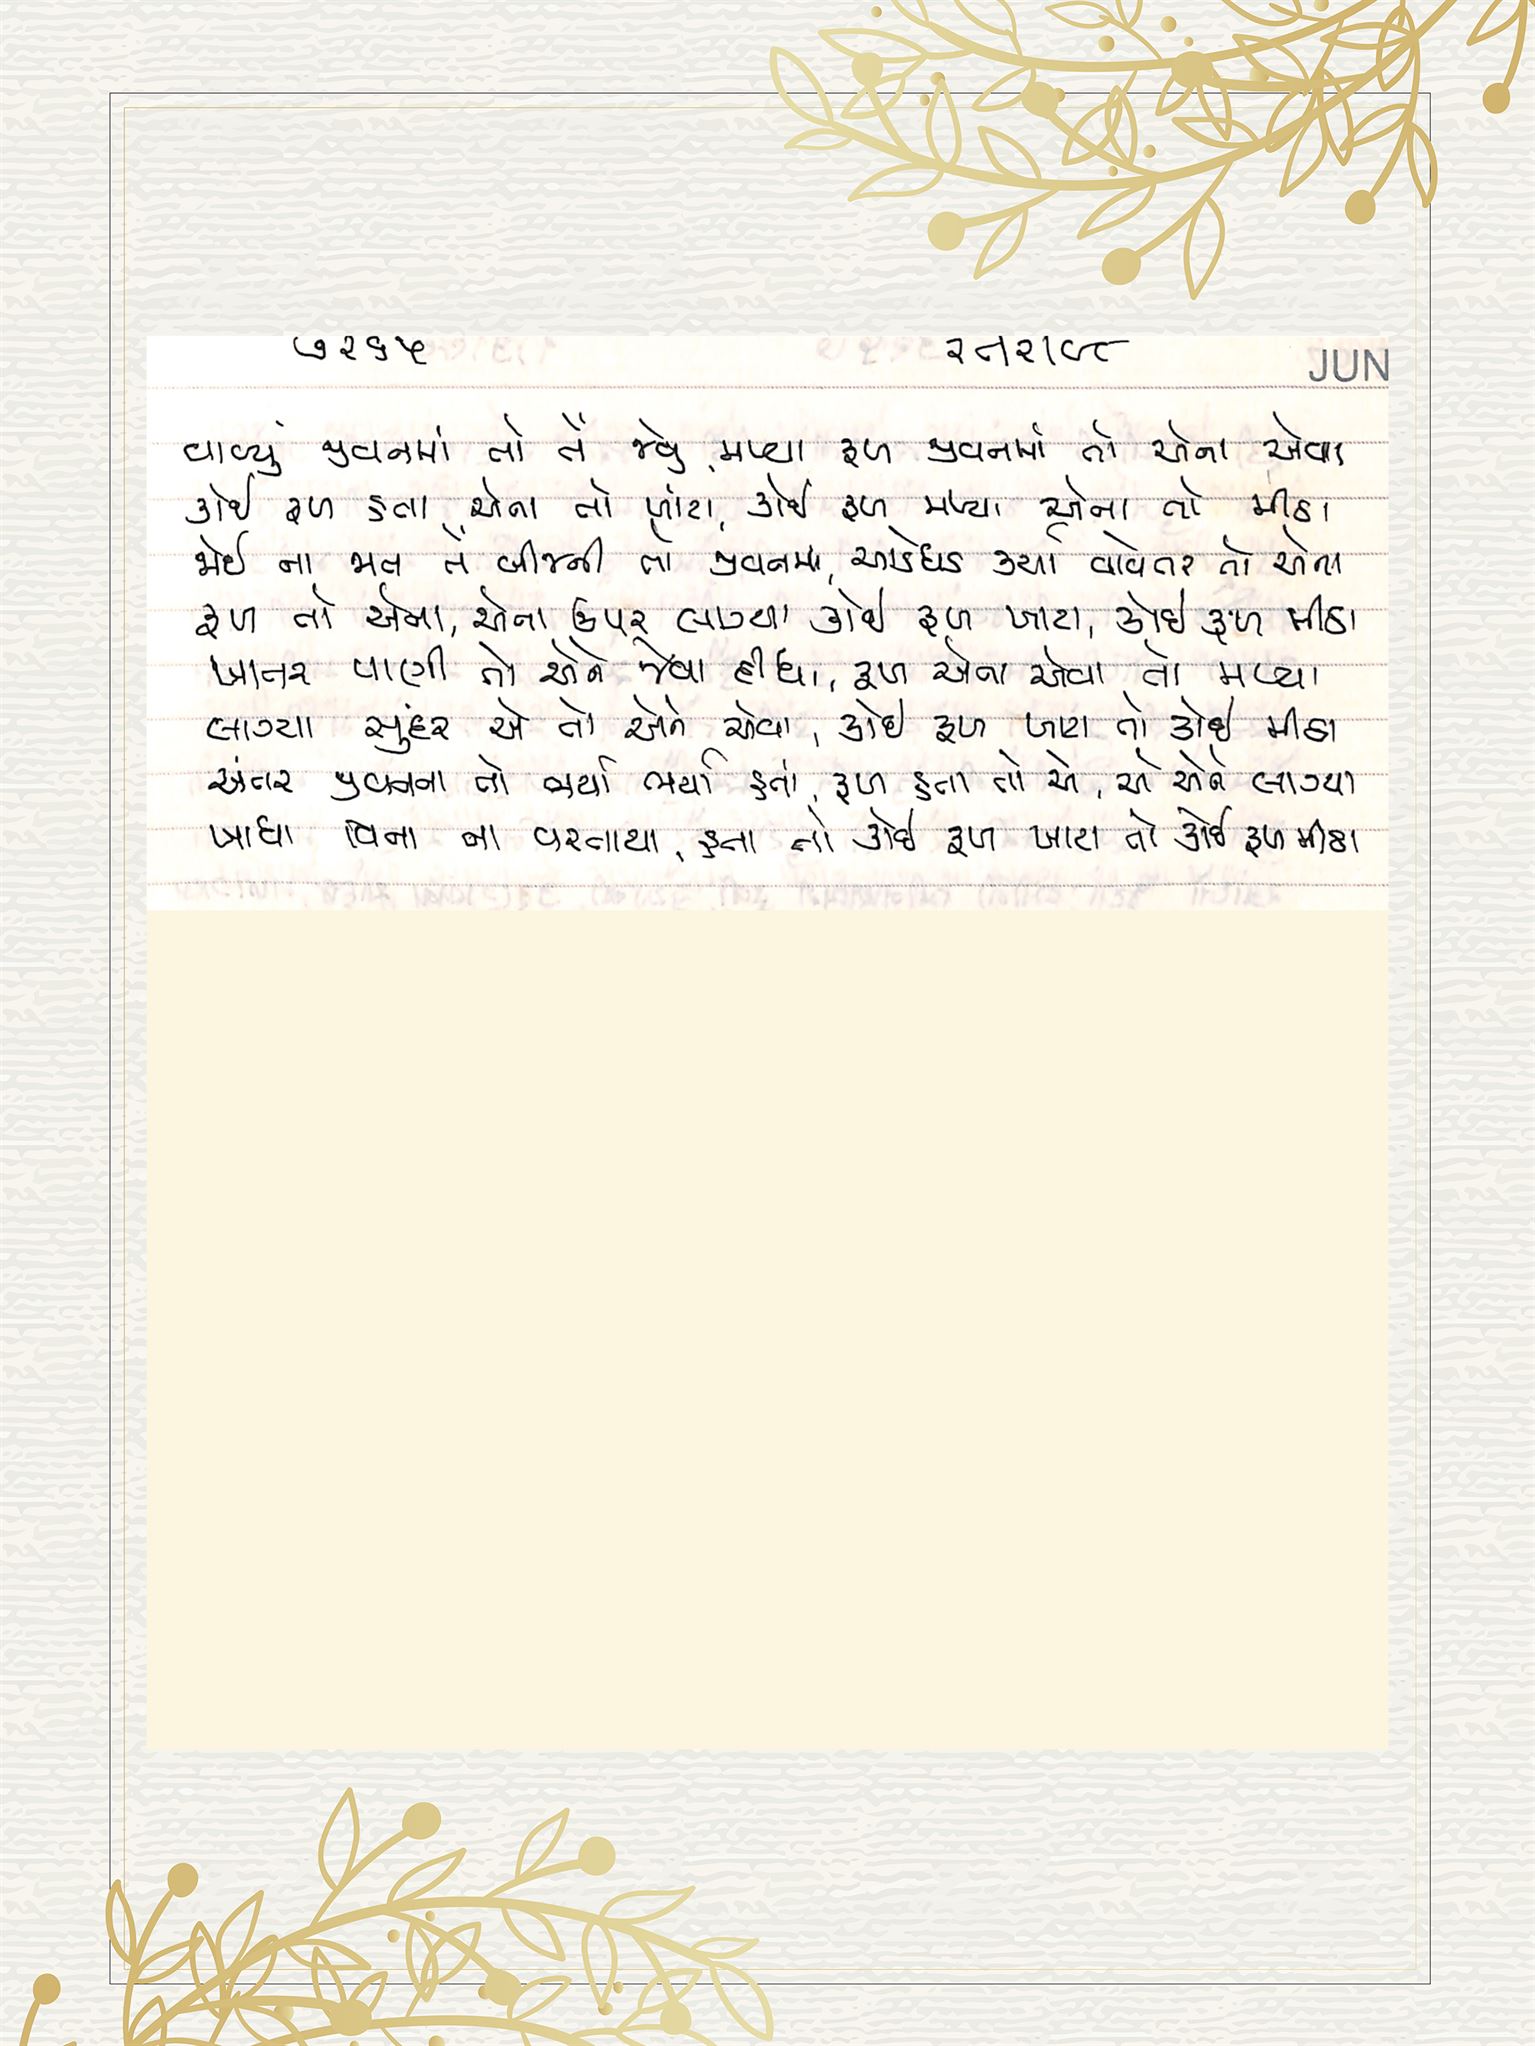 ૭૨૬૫
JUN
વાવ્યું જીવનમાં તો તેં જેવું, મળ્યા ફળ જીવનમાં તો એના એવા
કોઈ ફળ હતા એના તો ખાટા, કોઈ ફળ મળ્યા એના તો મીઠા
જોઈ ના જાત તેં બીજની તો જીવનમાં, આડેધડ કર્યા વાવેતર તો એના
ફળ તો એમાં, એના ઉપર લાગ્યા કોઈ ફળ ખાટા, કોઈ ફળ મીઠા
ખાતર પાણી તો એને જેવા દીધા, ફળ એના એવા તો મળ્યા
લાગ્યા સુંદર એ તો એને એવા, કોઈ ફળ ખાટા તો કોઈ મીઠા
અંતર જીવનના તો ભર્યા ભર્યા હતાં, ફળ હતા તો એ, એ એને લાગ્યા
ખાધા વિના ના વરતાયા, હતા તો કોઈ ફળ ખાટા તો કોઈ ફળ મીઠા